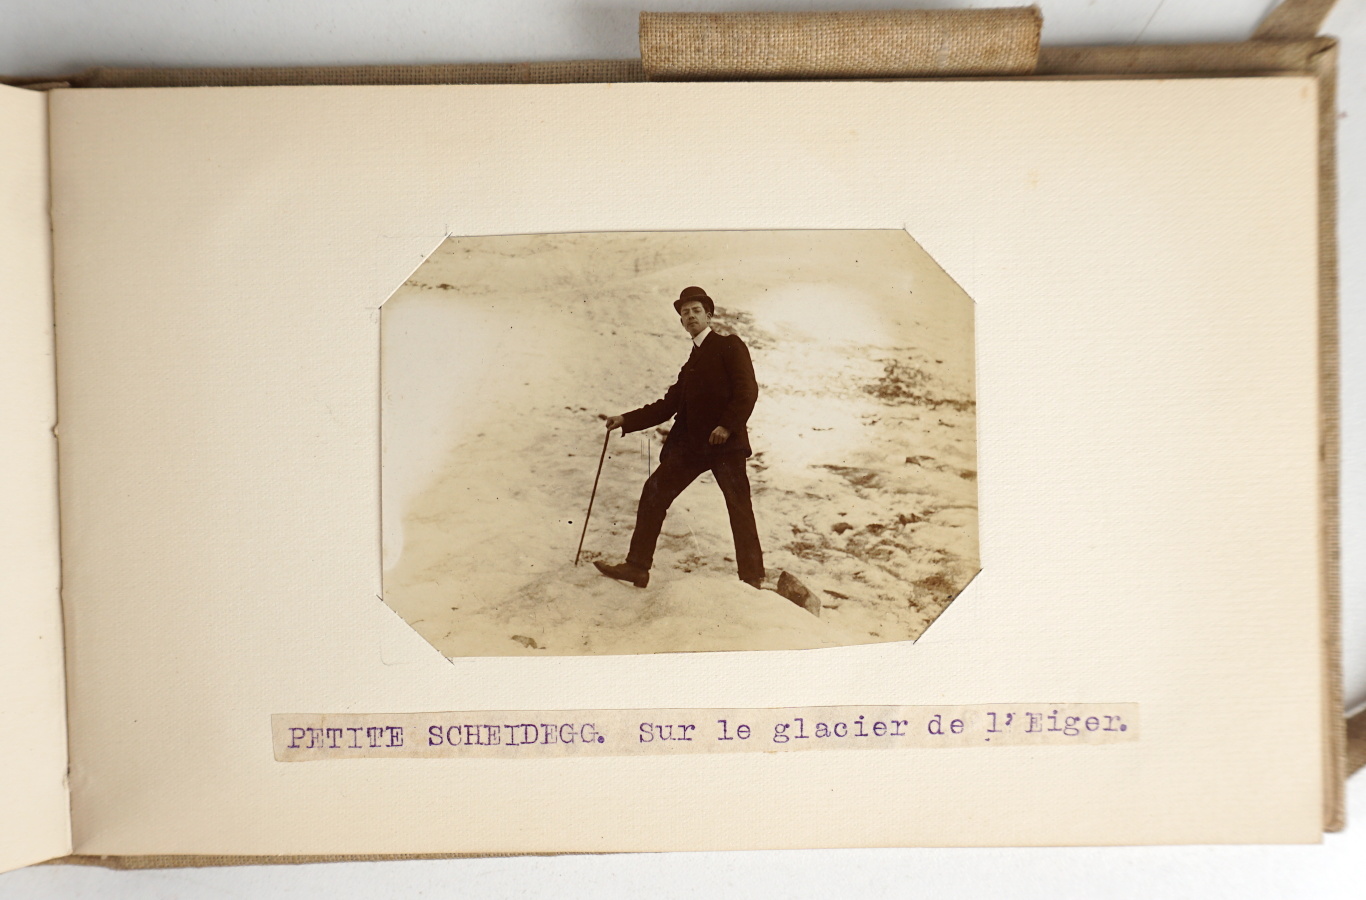 PETITE SCHEIDEGG. Sur le glacier de l'Eiger.